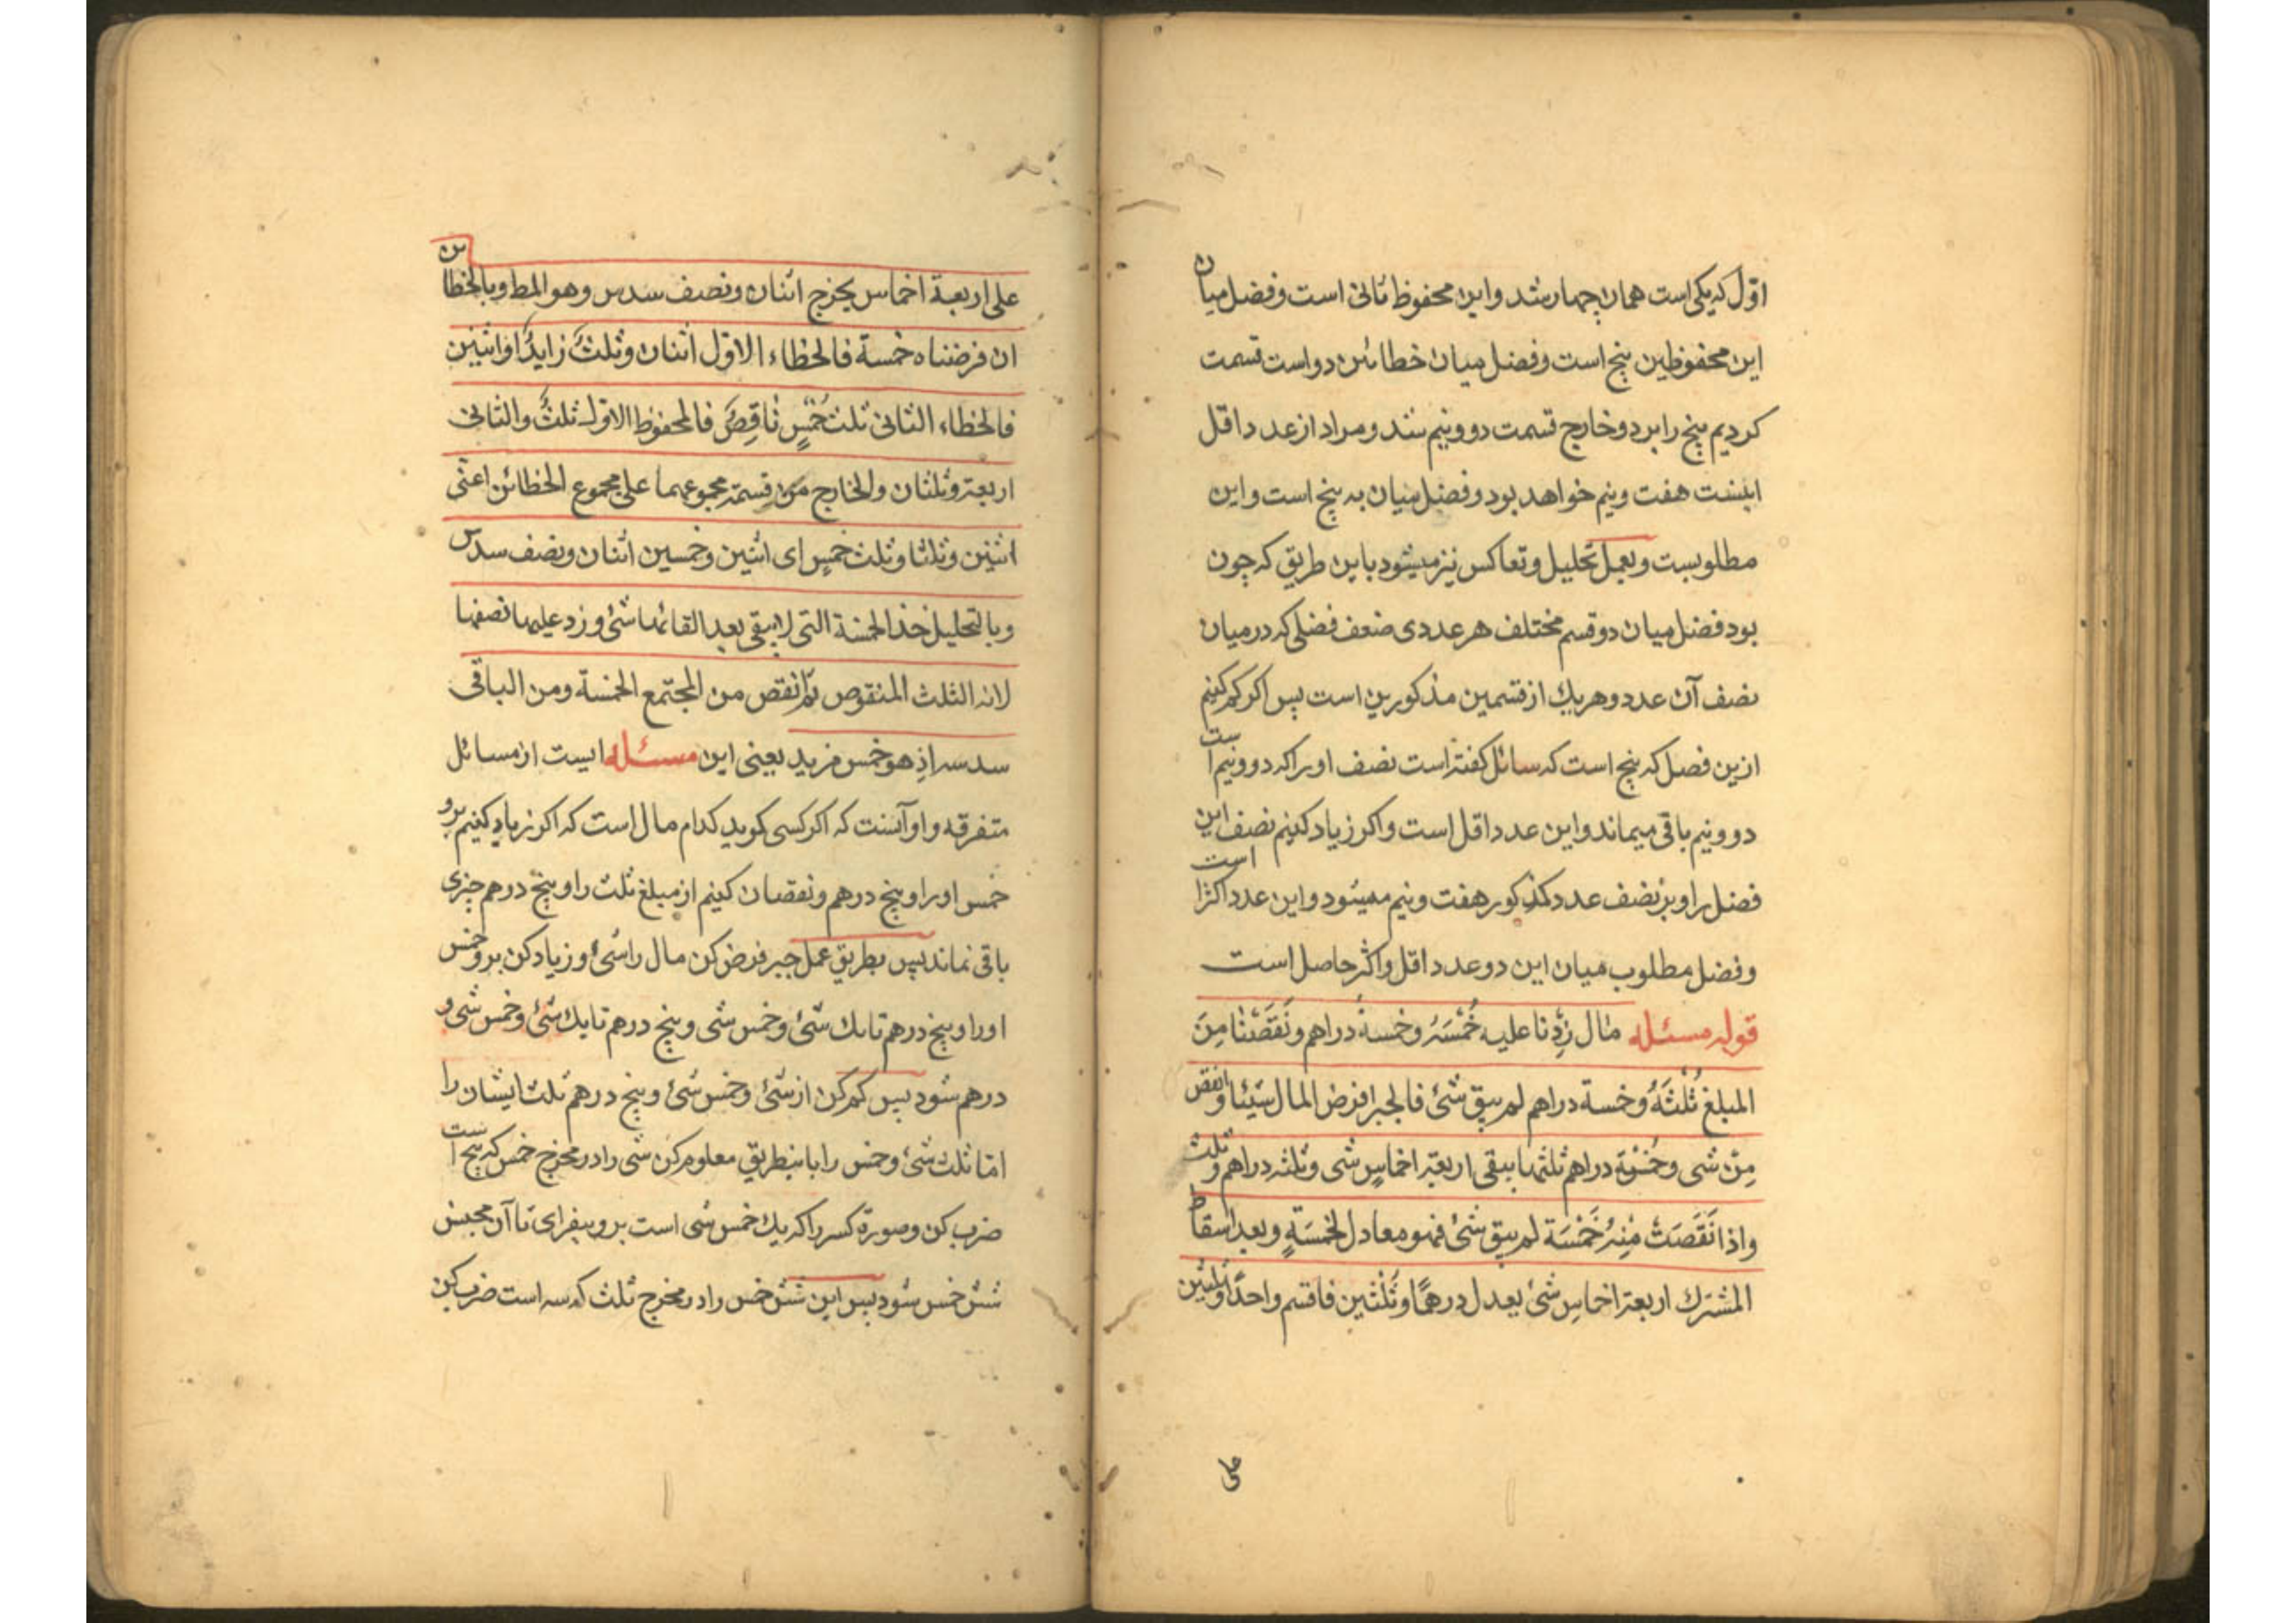 اوّل که یکی است همان چهار شد و این محفوظ ثانی است و فضل میان
این محفوظین پنج است و فضل میان خطائین دو است قسمت
کردیم پنج را بر دو خارج قسمت دو و نیم شد و مراد از عدد اقل
اینست هفت و نیم خواهد بود و فضل میان به پنج است و این
مطلوبست و بعمل تحلیل و تعاکس نیز میشود باین طریق که چون
بود فضل میان دو قسم مختلف هر عددی ضعف فضلی که در میان
نصف آن عدد و هر یك از قسمین مذکورین است پس اکر کم کنیم
ازین فصل که پنج است که سائل کفته است نصف او را که دو و نیم است
دو و نیم باقی میماند و این عدد اقل است و اکر زیاد کنیم نصف این
فضل را و بر نصف عدد مذکور هفت و نیم میشود و این عدد اکثر است
و فضل مطلوب میان این دو عدد اقل و اکثر حاصل است
قوله مسئله مال زِدنا علیه خُمْسَهُ و خمسةُ دراهم و نَقَصْنا مِنَ
المبلغ ثُلْثَهُ و خمسة دراهم لم یبق شئ فالجبر افرض المال شیئا و انقص
مِن شی و خُمْسِهِ و خمسة دراهم ثلثها یبقی اربعة اخماسِ شی و ثلثه دراهم و ثلث
و اذا نَقَصَتْ مِنْهُ خَمْسَة لم یبق شئ فهو معادل لخمسَةٍ و بعد اسقاط
المشترك اربعة اخماسِ شئ یعدل درهمًا و ثُلْثین فاقسم واحدًا و ثلثین
علی
علی اربعة اخماس یخرج اثنان و نصف سدس و هو المط و بالخطائین
ان فرضناه خمسة فالخطاء الاوّل اثنان و ثلثٌ زایدًا او اثنین
فالخطاء الثانی ثلث خُمْسٍ ناقِصٌ فالمحفوظ الاول ثلثٌ و الثانی
اربعة و ثلثان و الخارج من قسمة مجموعهما علی مجموع الخطائن اعنی
اثنین و ثلثا و ثلث خمسٍ ای اثنین و خمسین اثنان و نصف سدس
و بالتحلیل خذ الخمسة التی لا یبقی بعد القائها شئ و زد علیها نصفها
لانه الثلث المنقوص ثم انقص من المجتمع الخمسة و من الباقی
سدسه اذ هو خمس مزید یعنی این مسئله ایست از مسائل
متفرقه و او آنست که اکر کسی کوید کدام مال است که اکر زیاد کنیم برو
خمس او را و پنج درهم و نقصان کنیم از مبلغ ثلث را و پنج درهم چیزی
باقی نماند پس بطریق عمل جبر فرض کن مال را شئ و زیاد کن برو خمس
او را و پنج درهم تا یك شئ و خمس شی و پنج درهم تا یك شئ و خمس شی و
درهم شود پس کم کن از شئ و خمس شئ و پنج درهم ثلث ایشان را
امّا ثلث شئ و خمس را باینطریق معلوم کن شی را در مخرج خمس که پنج است
ضرب کن و صورة کسر را که یك خمس شی است برو بیفزای تا آن مجنس
شش خمس شود پس این شش خمس را در مخرج ثلث که سه است ضرب کن